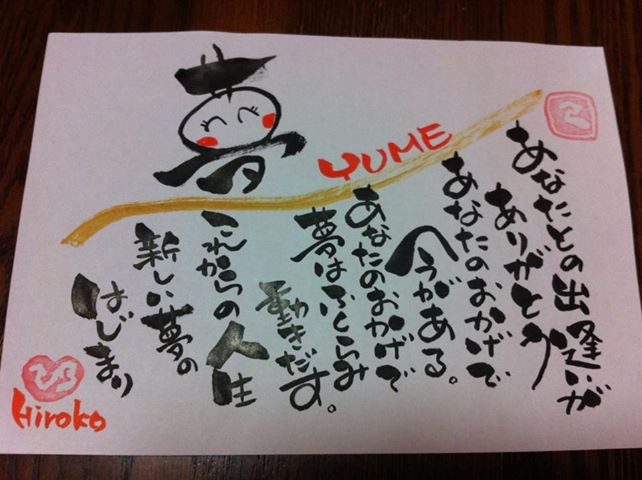 夢
YUME
あなたとの出逢いが
ありがとう
あなたのおかげで
今がある。
あなたのおかげで
夢はふくらみ
動きだす。
これからの人生
新しい夢の
はじまり
Hiroko